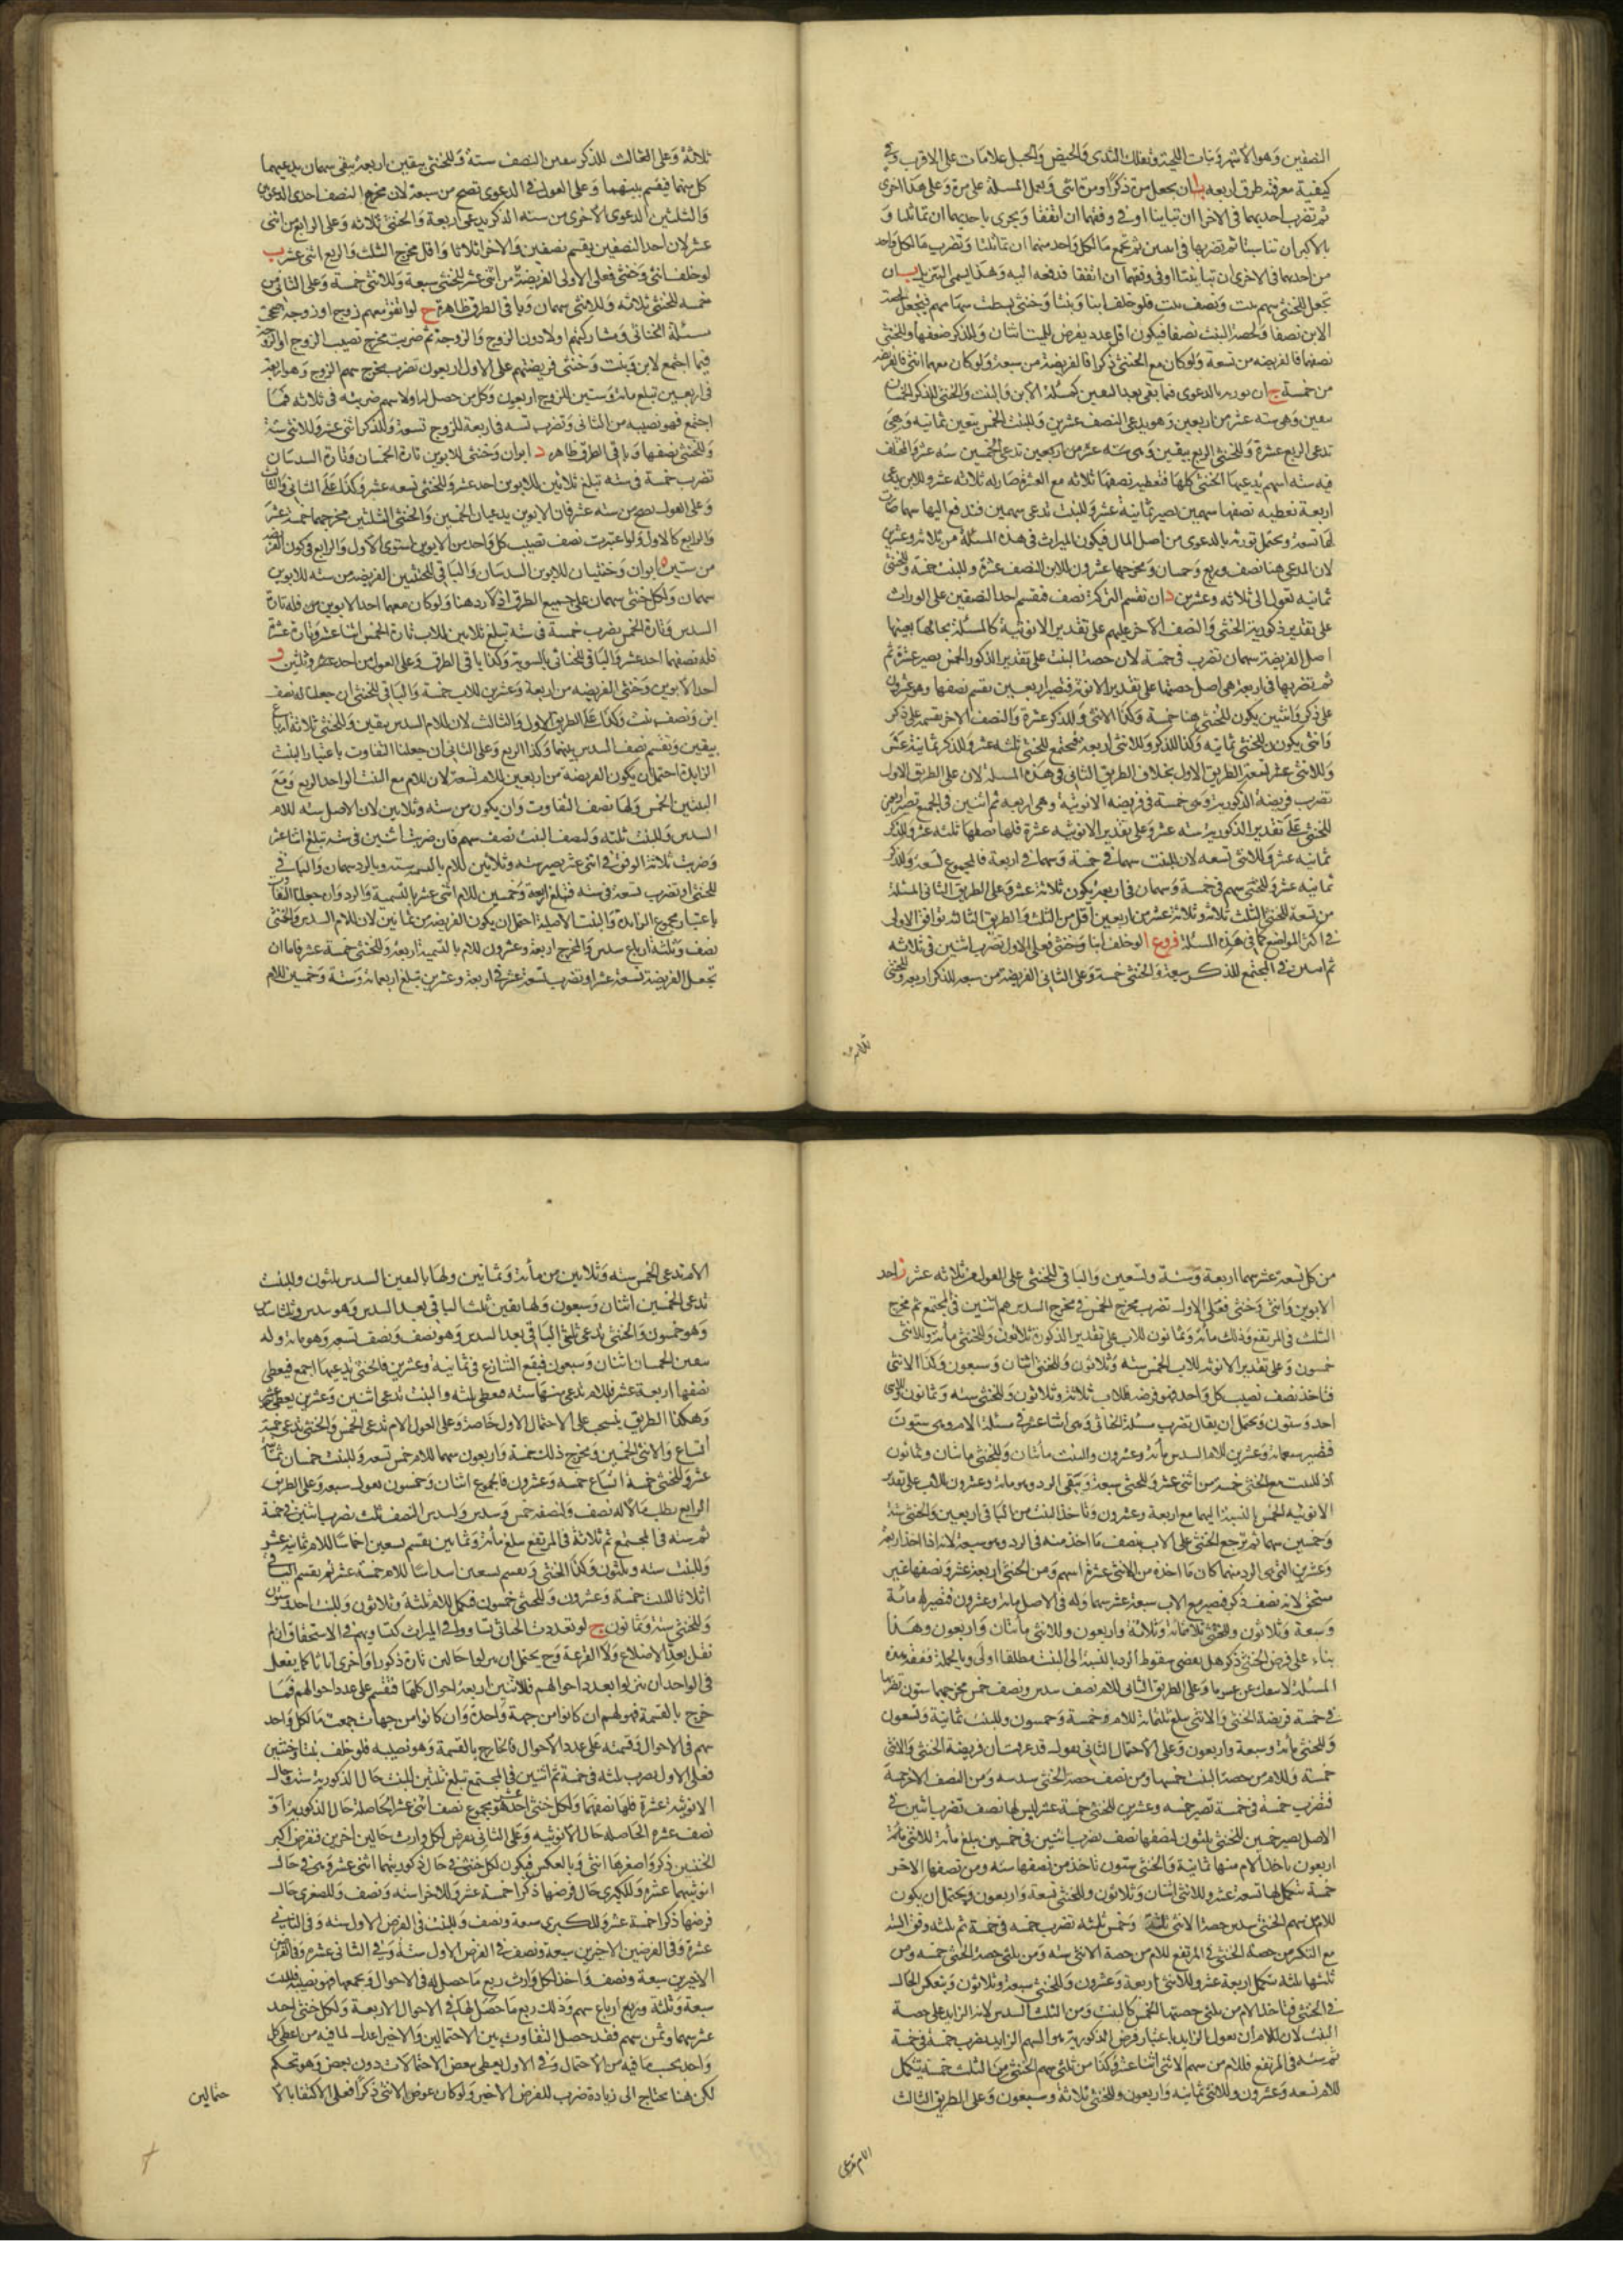 النصفين وهو الأشهر ونبات اللحية وتفلك الثدى والحيض والحبل علامات على الاقرب وفى
كيفية معرفته طرق اربعة ا ان يجعل مرة ذكرا ومرة انثى ويعمل المسئلة على مرة وعلى هذا اخرى
ثم تضرب احديهما فى الاخرى ان تباينا او فى وفقهما ان اتفقا ويجزى باحديهما ان تماثلا و
بالاكبر ان تناسبتا ثم تضربها فى اثنين ثم تجمع ما لكل واحد منهما ان تماثلتا وتضرب ما لكل واحد
من احديهما فى الاخرى ان تباينتا او فى وفقهما ان اتفقا فدفعه اليه وهذا يسمى التنزيل ب ان
تجعل للخنثى سهم بنت ونصف بنت فلو خلف ابنا وبنتا وخنثى بسطت سهامهم فتجعل لحصة
الابن نصفا ولحصة البنت نصفا فيكون اقل عدد يفرض للبنت اثنان وللذكر ضعفها وللخنثى
نصفهما فالفريضة من تسعة ولو كان مع الخنثى ذكرا فالفريضة من سبعة ولو كان معها انثى فالفريضة
من خمسة ج ان يورثه بالدعوى فيما بقى بعد اليقين كمسئلة الابن والبنت والخنثى للذكر الخمسان
بيقين وهى ستة عشر من اربعين وهو يدعى النصف عشرين وللبنت الخمس بيقين ثمانية وهى
تدعى الربع عشرة وللخنثى الربع بيقين وهى عشرة من اربعين تدعى الخمسين ستة عشر والمختلف
فيه ستة اسهم يدعيها الخنثى كلها فتعطيه نصفها ثلاثة مع العشرة صار له ثلاثة عشر وللابن يدعى
اربعة نعطيه نصفها سهمين يصير ثمانية عشر وللبنت تدعى سهمين فتدفع اليها سهما صار
لها تسعة ويحتمل توريثه بالدعوى من اصل المال فيكون الميراث فى هذه المسئلة من ثلاثة وعشرين
لان المدعى هنا نصف وربع وخمسان ومخرجها عشرون للابن النصف عشرة وللبنت خمسة وللخنثى
ثمانية تعول الى ثلاثة وعشرين د ان تقسم التركة نصفين فتقسم احد النصفين على الوراث
على تقدير ذكورية الخنثى والنصف الاخر عليهم على تقدير الانوثية كالمسئلة بحالها بعينها
اصل الفريضة سهمان تضرب فى خمسة لان حصة البنت على تقدير الذكور الخمس يصير عشرة ثم
ثم تضربها فى اربعة هى اصل حصتها على تقدير الانوثة فتصير اربعين تقسم نصفها وهو عشرون
على ذكر وانثيين يكون للخنثى هنا خمسة وكذا الانثى وللذكر عشرة والنصف الاخر تقسمه على ذكر
وانثى يكون للخنثى ثمانية وكذا للذكر وللانثى اربعة فيجتمع للخنثى ثلثة عشر وللذكر ثمانية عشر
وللانثى عشر تسعة الطريق الاول بخلاف الطريق الثانى فى هذه المسئلة لان على الطريق الاول
تضرب فريضة الذكورية وهى خمسة فى فريضة الانوثية وهى اربعة ثم اثنين فى المجتمع تصير اربعين
للخنثى على تقدير الذكورية ستة عشر وعلى تقدير الانوثية عشرة فلها نصفها ثلثة عشر وللذكر
ثمانية عشر وللانثى تسعة لان للبنت سهما فى خمسة وسهما فى اربعة فالمجموع تسعة وللذكر
ثمانية عشر وللخنثى سهم فى خمسة وسهمان فى اربعة يكون ثلاثة عشر وعلى الطريق الثانى المسئلة
من تسعة للخنثى الثلث ثلاثة وثلاثة عشر من اربعين اقل من الثلث والطريق الثالثه توافق الاولى
فى اكثر المواضع كما فى هذه المسئلة فروع ا لو خلف ابنا وخنثى فعلى الاول تضرب اثنين فى ثلاثة
ثم اثنين فى المجتمع للذكر سبعة وللخنثى خمسة وعلى الثانى الفريضة من سبعة للذكر اربعة وللخنثى
ثلاثة
ثلاثة وعلى الثالث للذكر بيقين النصف ستة وللخنثى بيقين اربعة يبقى سهمان يدعيهما
كل منهما فيقسم بينهما وعلى العول فى الدعوى تصح من سبعة لان مخرج النصف احدى الدعويين
والثلثين الدعوى الاخرى من ستة الذكر يدعى اربعة والخنثى ثلاثة وعلى الرابع من اثنى
عشر لان احد النصفين يقسم نصفين والاخر اثلاثا واقل مخرج الثلث والربع اثنى عشر ب
لو خلف انثى وخنثى فعلى الاولى الفريضة من اثنى عشر للخنثى سبعة وللانثى خمسة وعلى الثانى من
خمسة للخنثى ثلاثة وللانثى سهمان وباقى الطرق ظاهرة ج لو اتفق معهم زوج او زوجة صححت
مسئلة الخناثى ومشاركيهم اولا دون الزوج والزوجة ثم ضربت مخرج نصيب الزوج او الزوجة
فيما اجتمع لابن وبنت وخنثى فريضتهم على الاول اربعون تضرب مخرج سهم الزوج وهو اربعة
فى اربعين تبلغ مائة وستين للزوج اربعون وكل من حصل له اولا سهم ضربته فى ثلاثة فما
اجتمع فهو نصيبه من الثانى وتضرب تسعة فى اربعة للزوج تسعة وللذكر اثنى عشر وللانثى ستة
وللخنثى نصفهما وباقى الطرق ظاهر د ابوان وخنثى للابوين تارة الخمسان وتارة السدسان
تضرب خمسة فى ستة تبلغ ثلاثين للابوين احد عشر وللخنثى تسعة عشر وكذا على الثانى والثالث
وعلى العول تصح من ستة عشر فان الابوين يدعيان الخمسين والخنثى الثلثين مخرجهما خمسة عشر
والرابع كالاول ولو اعتبرت نصف نصيب كل واحد من الابوين استوى الاول والرابع فى كون الفريضة
من ستين ه ابوان وخنثيان للابوين السدسان والباقى للخنثيين الفريضة من ستة للابوين
سهمان ولكل خنثى سهمان على جميع الطرق اذ لا رد هنا ولو كان معهما احد الابوين فله تارة
السدس وتارة الخمس يضرب خمسة فى ستة تبلغ ثلاثين للاب تارة الخمس اثنا عشر وتارة عشرة
فله نصفهما احد عشر والباقى للخناثى بالسوية وكذا باقى الطرق وعلى العول من احد وثلثين و
احد الابوين وخنثى الفريضة من اربعة وعشرين للاب خمسة والباقى للخنثى ان جعلنا له نصف
ابن ونصف بنت وكذا على الطريق الاول والثالث لان للام السدس بيقين وللخنثى ثلاثة ارباع
بيقين ونقسم نصف السدس بينهما وكذا الرابع وعلى الثانى ان جعلنا التفاوت باعتبار البنت
الزايدة احتمل ان يكون الفريضة من اربعين للام تسعة لان للام مع البنت الواحد الربع ومع
البنتين الخمس ولها نصف التفاوت وان يكون من ستة وثلاثين لان الاصل ستة للام
السدس وللبنت ثلثة ولنصف البنت نصف سهم فان ضربت اثنين فى ستة تبلغ اثنا عشر
وضربت ثلاثة الوفق فى اثنى عشر يصير ستة وثلاثين للام بالتسمية ستة وبالرد سهمان والباقى
للخنثى او تضرب تسعة فى ستة فتبلغ اربعة وخمسين للام اثنى عشر بالتسمية والرد وان جعلنا التفاوت
باعتبار مجموع الزايدة والبنت الاصلية احتمل ان يكون الفريضة من ثمانين لان للام السدس وللخنثى
نصف وثلثة ارباع سدس والمخرج اربعة وعشرون للام بالتسمية اربعة وللخنثى خمسة عشر فاما ان
تجعل الفريضة تسعة عشر او تضرب تسعة عشر فى اربعة وعشرين تبلغ اربعمائة وستة وخمسين للام
من كل تسعة عشر سهما اربعة وستة وتسعين والباقى للخنثى على العول من ثلاثة عشر ز احد
الابوين وانثى وخنثى فعلى الاول تضرب مخرج الخمس فى مخرج السدس ثم اثنين فى المجتمع ثم مخرج
الثلث فى المرتفع وذلك مائة وثمانون للاب على تقدير الذكورة ثلاثون وللخنثى مائة وللانثى
خمسون وعلى تقدير الانوثة للاب الخمس ستة وثلاثون وللخنثى اثنان وسبعون وكذا الانثى
فتاخذ نصف نصيب كل واحد فهو فرضه فللاب ثلاثة وثلاثون وللخنثى ستة وثمانون وللانثى
احد وستون ويحتمل ان يقال تضرب مسئلة الخناثى وهى اثنا عشر فى مسئلة الام وهى ستون
فتصير سبعمائة وعشرين للام السدس مائة وعشرون وللبنت مائتان وللخنثى مائتان وثمانون
اذ للبنت مع الخنثى خمسة من اثنى عشر وللخنثى سبعة ويبقى الرد وهو مائة وعشرون للاب على تقدير
الانوثية الخمس بالنسبة اليهما مع اربعة وعشرون وتاخذ البنت من الباقى اربعين وللخنثى ستة
وخمسين سهما ثم ترجع الخنثى على الاب بنصف ما اخذ منه فى الرد وهو سبعة لانه اذا اخذ اربعة
وعشرين التى هى الرد منهما كان ما اخذه من الانثى عشرة اسهم ومن الخنثى اربعة عشر ونصفها غير
مستحق لانه نصف ذكر فيصير مع الاب سبعة عشر سهما وله فى الاصل مائة وعشرون فتصير له مائة
وسبعة وثلاثون وللخنثى ثلاثمائة وثلاثة واربعون وللانثى مائتان واربعون وهذا
بناء على فرض الخنثى ذكر هل يقتضى سقوط الرد بالنسبة الى البنت مطلقا اولى وبالجملة فقفه هذه
المسئلة لا ينفك من عسر ما وعلى الطريق الثانى للام نصف سدس ونصف خمس مخرجهما ستون تضربها
فى خمسة فريضة الخنثى والانثى تبلغ ثلثمائة للام خمسة وخمسون وللبنت ثمانية وتسعون
وللخنثى مائة وسبعة واربعون وعلى الاحتمال الثانى نقول قد عرفت ان فريضة الخنثى والانثى
خمسة وللام من حصة البنت خمسها ومن نصف حصة الخنثى سدسه ومن النصف الاخر خمسه
فتضرب خمسة فى خمسة تصير خمسة وعشرين للخنثى خمسة عشر ليس لها نصف تضرب اثنين فى
الاصل يصير خمسين للخنثى ثلثون لنصفها نصف تضرب اثنين فى خمسين يبلغ مائة للانثى منه
اربعون ياخذ الام منها ثمانية والخنثى ستون تاخذ من نصفها ستة ومن نصفها الاخر
خمسة تكمل لها تسعة عشر وللانثى اثنان وثلاثون وللخنثى تسعة واربعون ويحتمل ان يكون
للام من سهم الخنثى سدس حصة الانثى ثلثه وخمس ثلثه تضرب خمسة فى خمسة ثم ثلثه وفق الستة
مع التكرير من حصة الخنثى فى المرتفع للام من حصة الانثى ستة ومن ثلثى حصة الخنثى خمسة ومن
ثلثها ثلثه تكمل اربعة عشر وللانثى اربعة وعشرون وللخنثى سبعة وثلاثون وينعكس الحال
فى الخنثى فتاخذ الام من ثلثى حصتها الخمس كالبنت ومن الثلث السدس لانه الزايد على حصة
البنت لان للام ان تعول الزايد باعتبار فرض الذكورية هو السهم الزايد يضرب خمسة فى خمسة
ثم ستة فى المرتفع فللام من سهم الانثى اثنا عشر وكذا من ثلثى سهم الخنثى ومن الثلث خمسة تكمل
للام تسعة وعشرون وللانثى ثمانية واربعون وللخنثى ثلاثة وسبعون وعلى الطريق الثالث
الام تدعى
الام تدعى الخمس ستة وثلاثين من مائة وثمانين ولها باليقين السدس ثلثون وللبنت
تدعى الخمسين اثنان وسبعون ولها بيقين ثلث الباقى بعد السدس وهو سدس وثلثا سدس
وهو خمسون والخنثى يدعى ثلثى الباقى بعد السدس وهو نصف ونصف تسع وهو مائة وله
بيقين الخمسان اثنان وسبعون فيقع التنازع فى ثمانية وعشرين فالخنثى تدعيها اجمع فيعطى
نصفها اربعة عشر فللام تدعى منها ستة فتعطى ثلثه والبنت تدعى اثنين وعشرين يعطى احد عشر
وهكذا الطريق ينسحب على الاحتمال الاول خاصة وعلى العول الام تدعى الخمس والخنثى تدعى خمسة
اتساع والانثى الخمسين ومخرج ذلك خمسة واربعون سهما للام خمس تسعة وللبنت خمسان ثمانية
عشر وللخنثى خمسة اتساع خمسة وعشرون فالمجموع اثنان وخمسون تعول سبعة وعلى الطريق
الرابع يطلب مالا له نصف ولنصفه خمس وسدس ولسدس النصف ثلث يضرب اثنين فى خمسة
ثم ستة فى المجتمع ثم ثلاثة فى المرتفع تبلغ مائة وثمانين يقسم تسعين اخماسا للام ثمانية عشر
وللبنت ستة وثلثون وكذا الخنثى ويقسم تسعين اسداسا للام خمسة عشر ثم يقسم الباقى
اثلاثا للبنت خمسة وعشرون وللخنثى خمسون فتكمل للام ثلثة وثلاثون وللبنت احد وستون
وللخنثى ستة وثمانون ح لو تعددت الخناثى تساووا فى الميراث كتساويهم فى الاستحقاق ان لم
نقل بعد الاضلاع ولا القرعة وح يحتمل ان ينزلوا حالين تارة ذكورا واخرى اناثا كما يفعل
فى الواحد ان ينزلوا بعدد احوالهم فللاثنين اربعة احوال كلها فتقسم على عدد احوالهم فما
خرج بالقسمة فهو لهم ان كانوا من جهة واحدة وان كانوا من جهات جمعت ما لكل واحد
سهم فى الاحوال وقسمته على عدد الاحوال فالخارج بالقسمة وهو نصيبه فلو خلف بنتا وخنثيين
فعلى الاول يضرب ثلثه فى خمسة ثم اثنين فى المجتمع تبلغ ثلثين للبنت حال الذكورية ستة وحال
الانوثية عشرة فلها نصفهما ولكل خنثى احد عشر هو مجموع نصف اثنى عشر الحاصلة حال الذكورية او
نصف عشرة الحاصلة حال الانوثية وعلى الثانى يفرض لكل وارث حالين اخرين فنفرض اكبر
الخنثيين ذكرا واصغرها انثى وبالعكس فيكون لكل خنثى فى حال ذكوريتهما اثنى عشر وهى فى حال
انوثيتهما عشرة وللكبرى حال فرضها ذكرا خمسة عشر وللاخر سبعة ونصف وللصغرى حال
فرضها ذكرا خمسة عشر وللكبرى سبعة ونصف وللبنت فى الفرض الاول ستة وفى الثانى
عشرة وفى الفرضين الاخيرين سبعة ونصف فى الفرض الاول ستة وفى الثانى عشرة وفى الفرضين
الاخيرين سبعة ونصف واخذ لكل وارث ربع ما حصل له فى الاحوال وجمعها فهو نصيبه فللبنت
سبعة وثلثة وربع ارباع سهم وذلك ربع ما حصل لها فى الاحوال الاربعة ولكل خنثى احد
عشر سهما وثمن سهم فقد حصل التفاوت بين الاحتمالين والاخير اعدل لما فيه من اعطى كل
واحد بحسب ما فيه من الاحتمال وفى الاول يعطى بعض الاحتمالات دون بعض وهو تحكم
لكن هنا يحتاج الى زيادة ضرب للفرض الاخير ولو كان عوض الانثى ذكرا فعلى الاكتفاء بالا
حتمالين